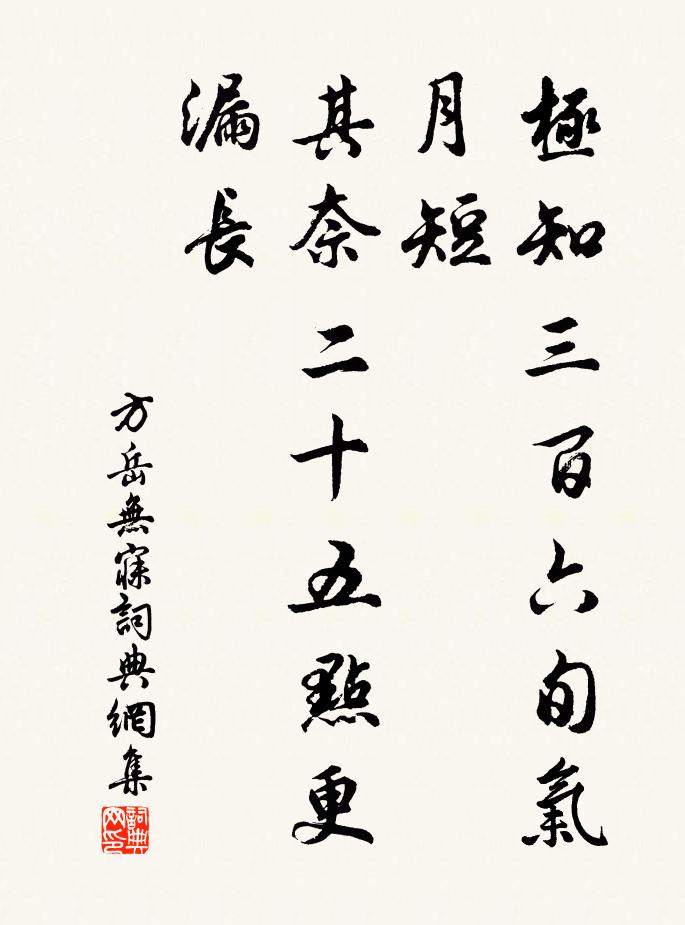 極知三百六旬氣
月短
其奈二十五點更
漏長
方岳無寐詞典網集
詞典
网印